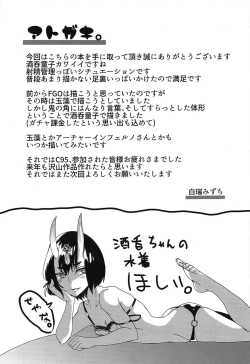 アトガキ。
今回はこちらの本を手に取って頂き誠にありがとうございます
酒呑童子カワイイですね
射精管理っぽいシチュエーションです
普段あまり描かない足っぽいのも描いかけたので満足です
前からFGOは描こうと思っていたのですが
その時は玉藻で描こうとしていました
しかし鬼の角にはんなり言葉、そしてすらっとした体形
ということで酒呑童子で描きました
(ガチャ課金したという思い出も込めて)
玉藻とかアーチャーインフェルノさんとかも
いつか描いてみたいです
それではC95、参加された皆様お疲れさまでした
来年も沢山作品作れたらと思います
それではまた次回よろしくお願いいたします
白瑠みずち
酒呑ちゃんの
水着
ほしい。
せやかて。